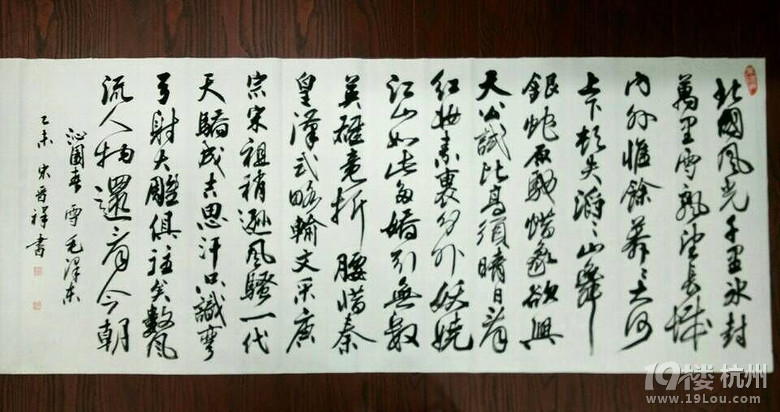 北國風光千里冰封
萬里雪飘望長城
内外惟餘莽〻大河
上下頓失滔〻山舞
銀蛇原馳蜡象欲與
天公試比高須晴日看
紅妝素裹分外妖嬈
江山如此多嬌引無數
英雄竟折腰惜秦
皇漢武略輸文采唐
宗宋祖稍遜風騷一代
天驕成吉思汗只識彎
弓射大雕俱往矣數風
流人物還看今朝
沁園春 雪 毛澤東
乙未 宋晋祥書
19楼 杭州
www.19Lou.com